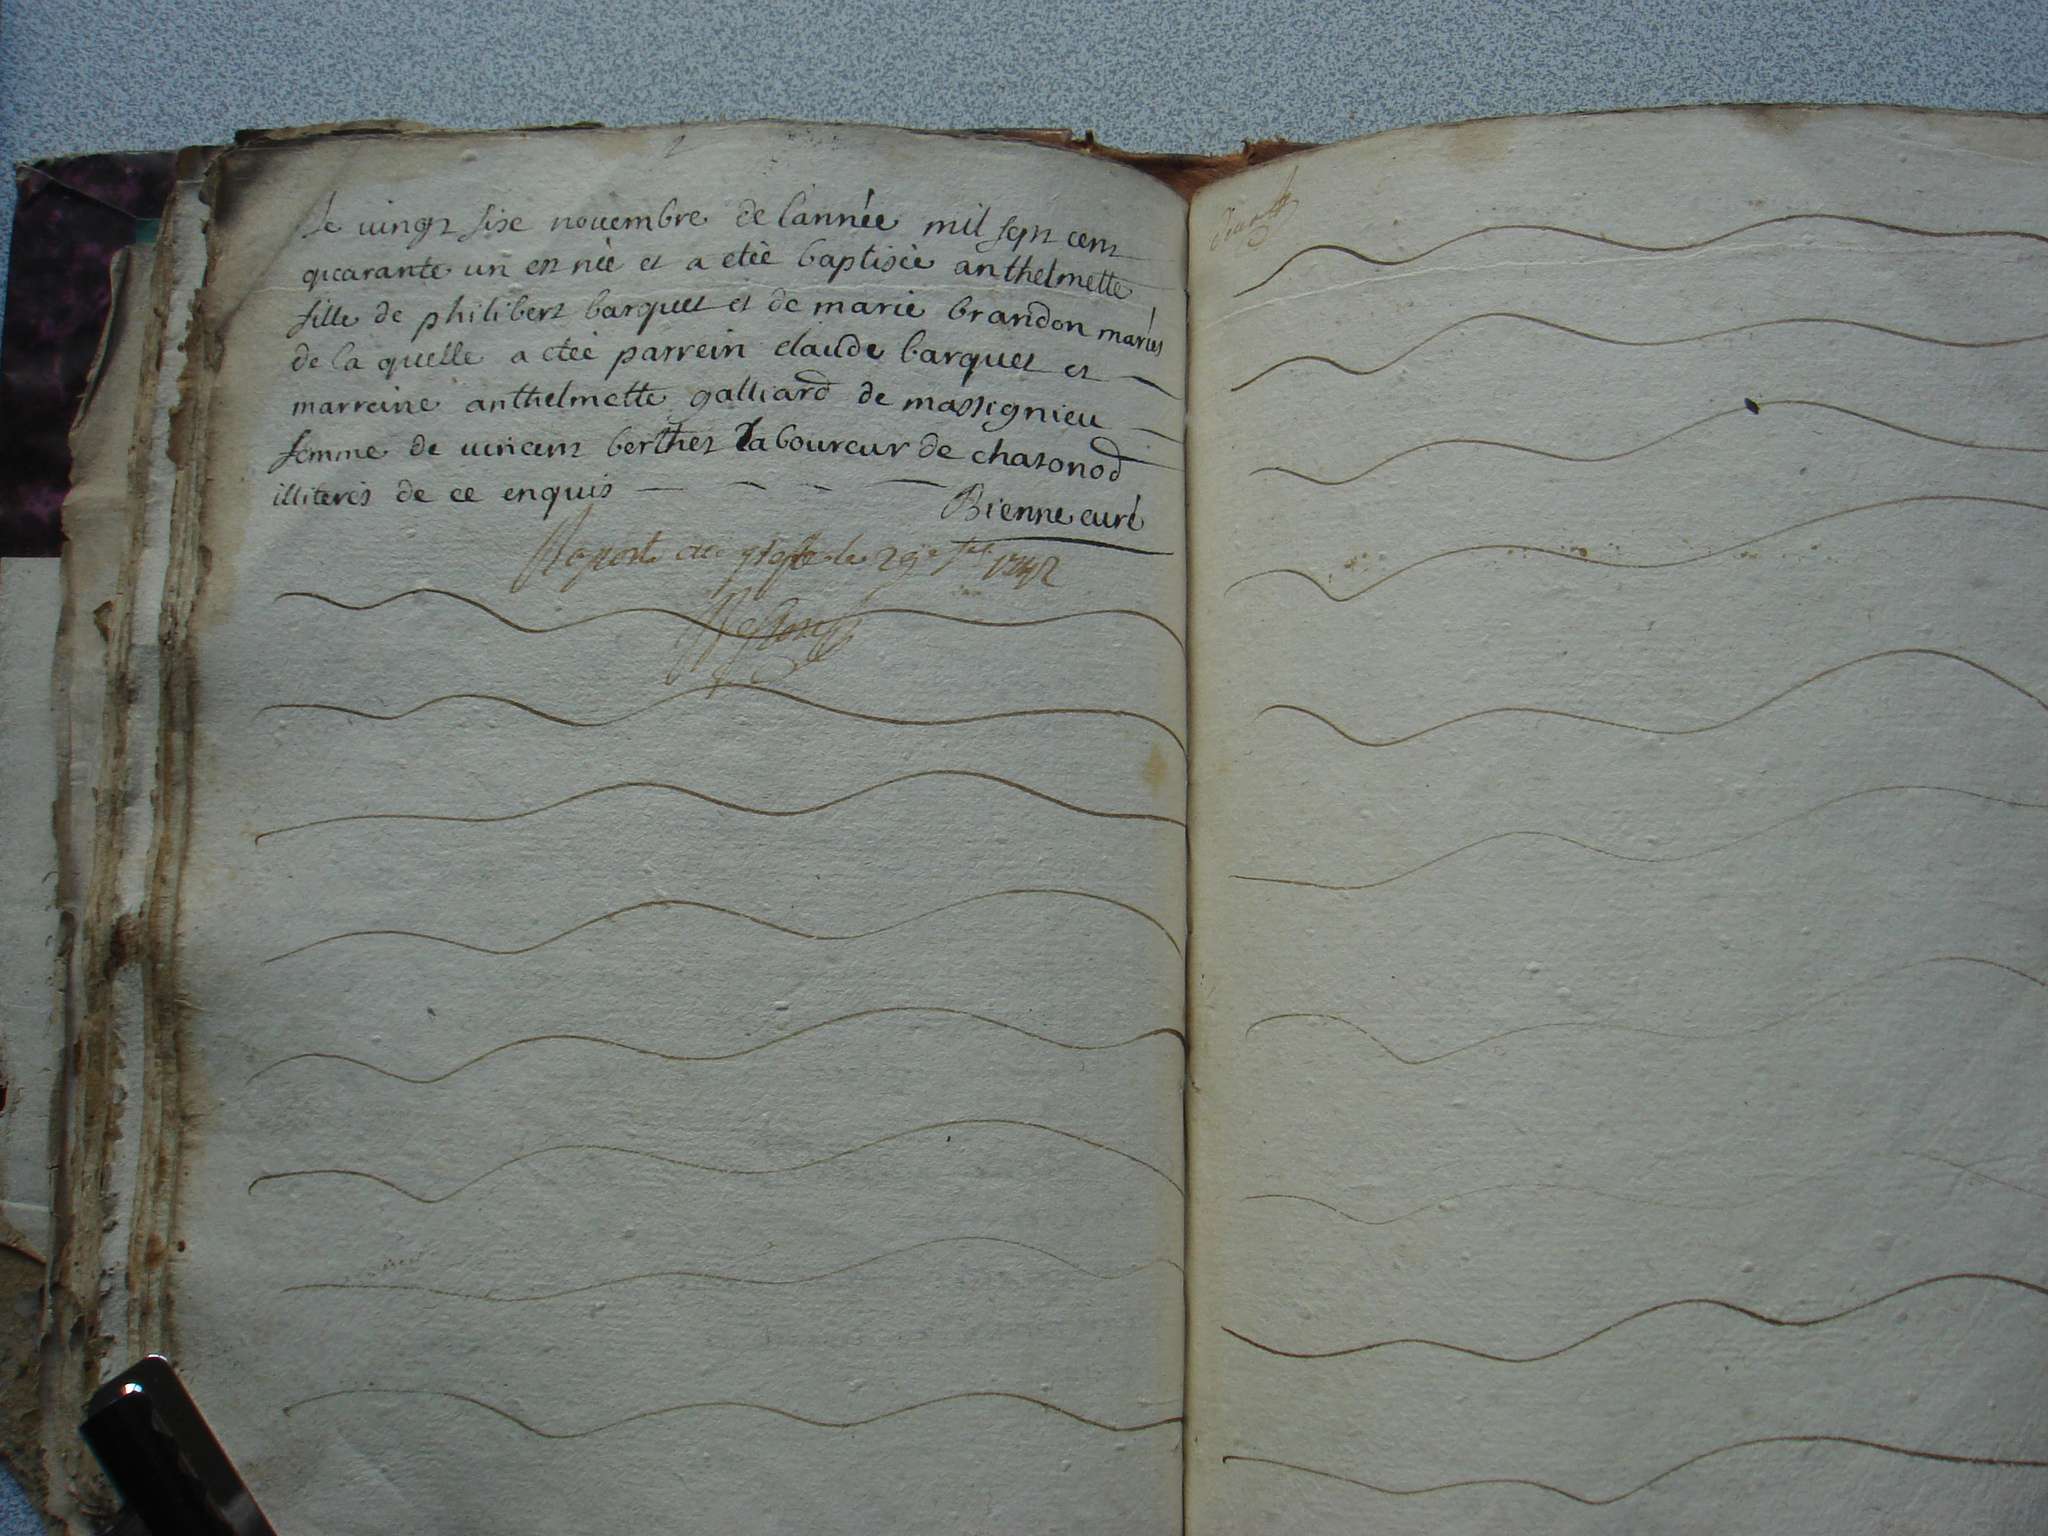 le vingt sixe novembre de lannée mil sept cent
quarante un est née et a etée baptisée anthelmette
fille de philibert barquet et de marie brandon mariés
de la quelle a etée parrein claude barquet et
marreine anthelmette galliard de massignieu
femme de vincent berthet laboureur de chatonod
illiterés de ce enquis
Bienne curé
Aporté au greffe le 29e 1742